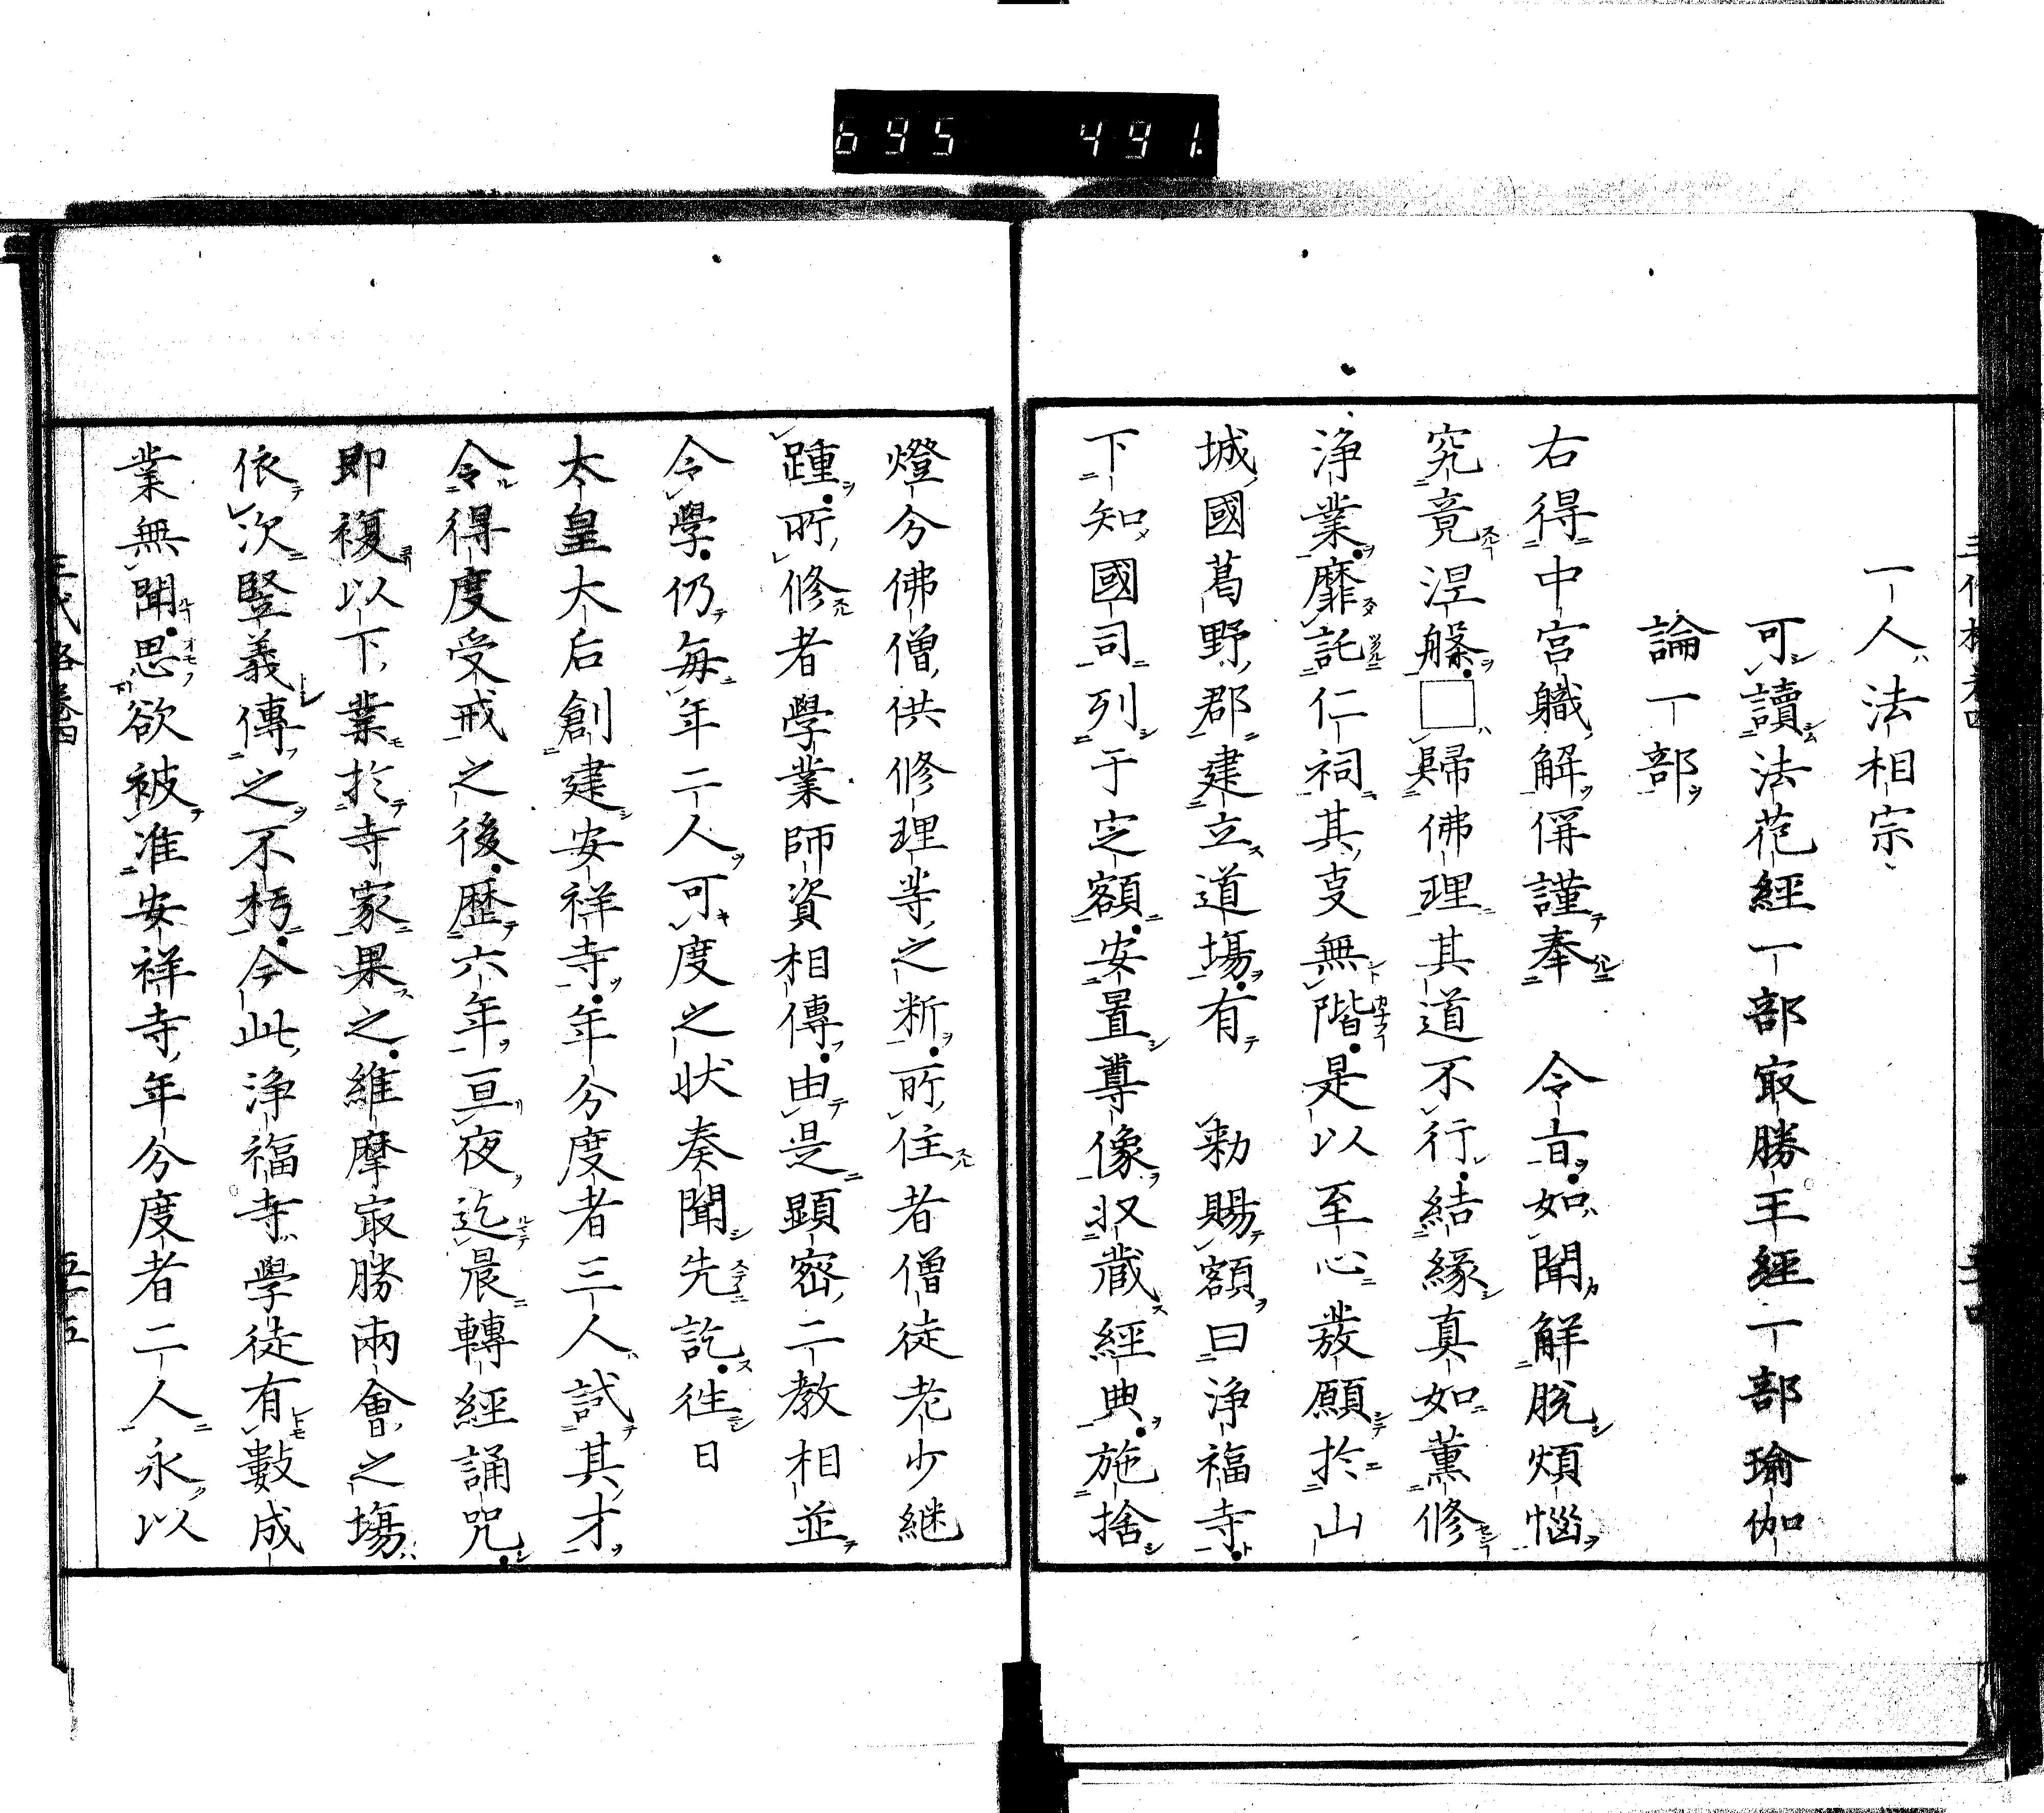 695 491.
一人法相宗
可讀法花經一部㝡勝王經一部瑜伽
論一部
右得中宮職解偁謹奉 令旨如聞解脱煩惱
究竟涅槃□歸佛理其道不行結緣真如薫修
浄業靡託仁祠其㕝無階是以至心發願於山
城國葛野郡建立道場有 勅賜額曰浄福寺
下知國司列于定額安置尊像収蔵經典施捨
燈分佛僧供修理等之断所住者僧徒老少継
踵所修者學業師資相傳由是顕密二教相並
令學仍每年二人可度之状奏聞先訖徃日
太皇大后創建安祥寺年分度者三人試其才
令得度受戒之後歴六年亘夜迄晨轉經誦咒
即複以下業於寺家果之維摩㝡勝兩會之場
依次竪義傳之不朽今此浄福寺學徒有數成
業無聞思欲被准安祥寺年分度者二人永以